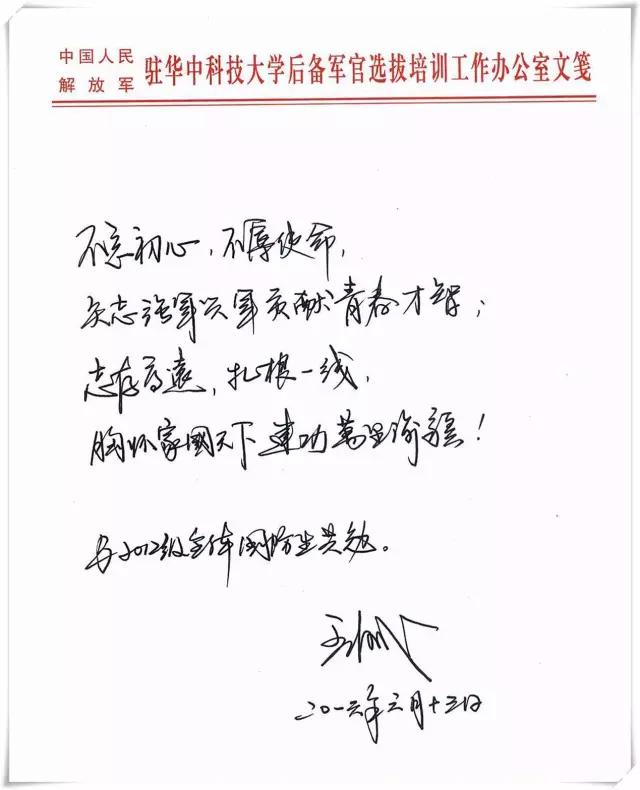 中国人民
解放军
驻华中科技大学后备军官选拔培训工作办公室文笺
不忘初心，不辱使命，
矢志强军兴军贡献青春才智；
志存高远，扎根一线，
胸怀家國天下建功萬里疆！
与2012级全体国防生共勉。
二〇一六年六月十三日